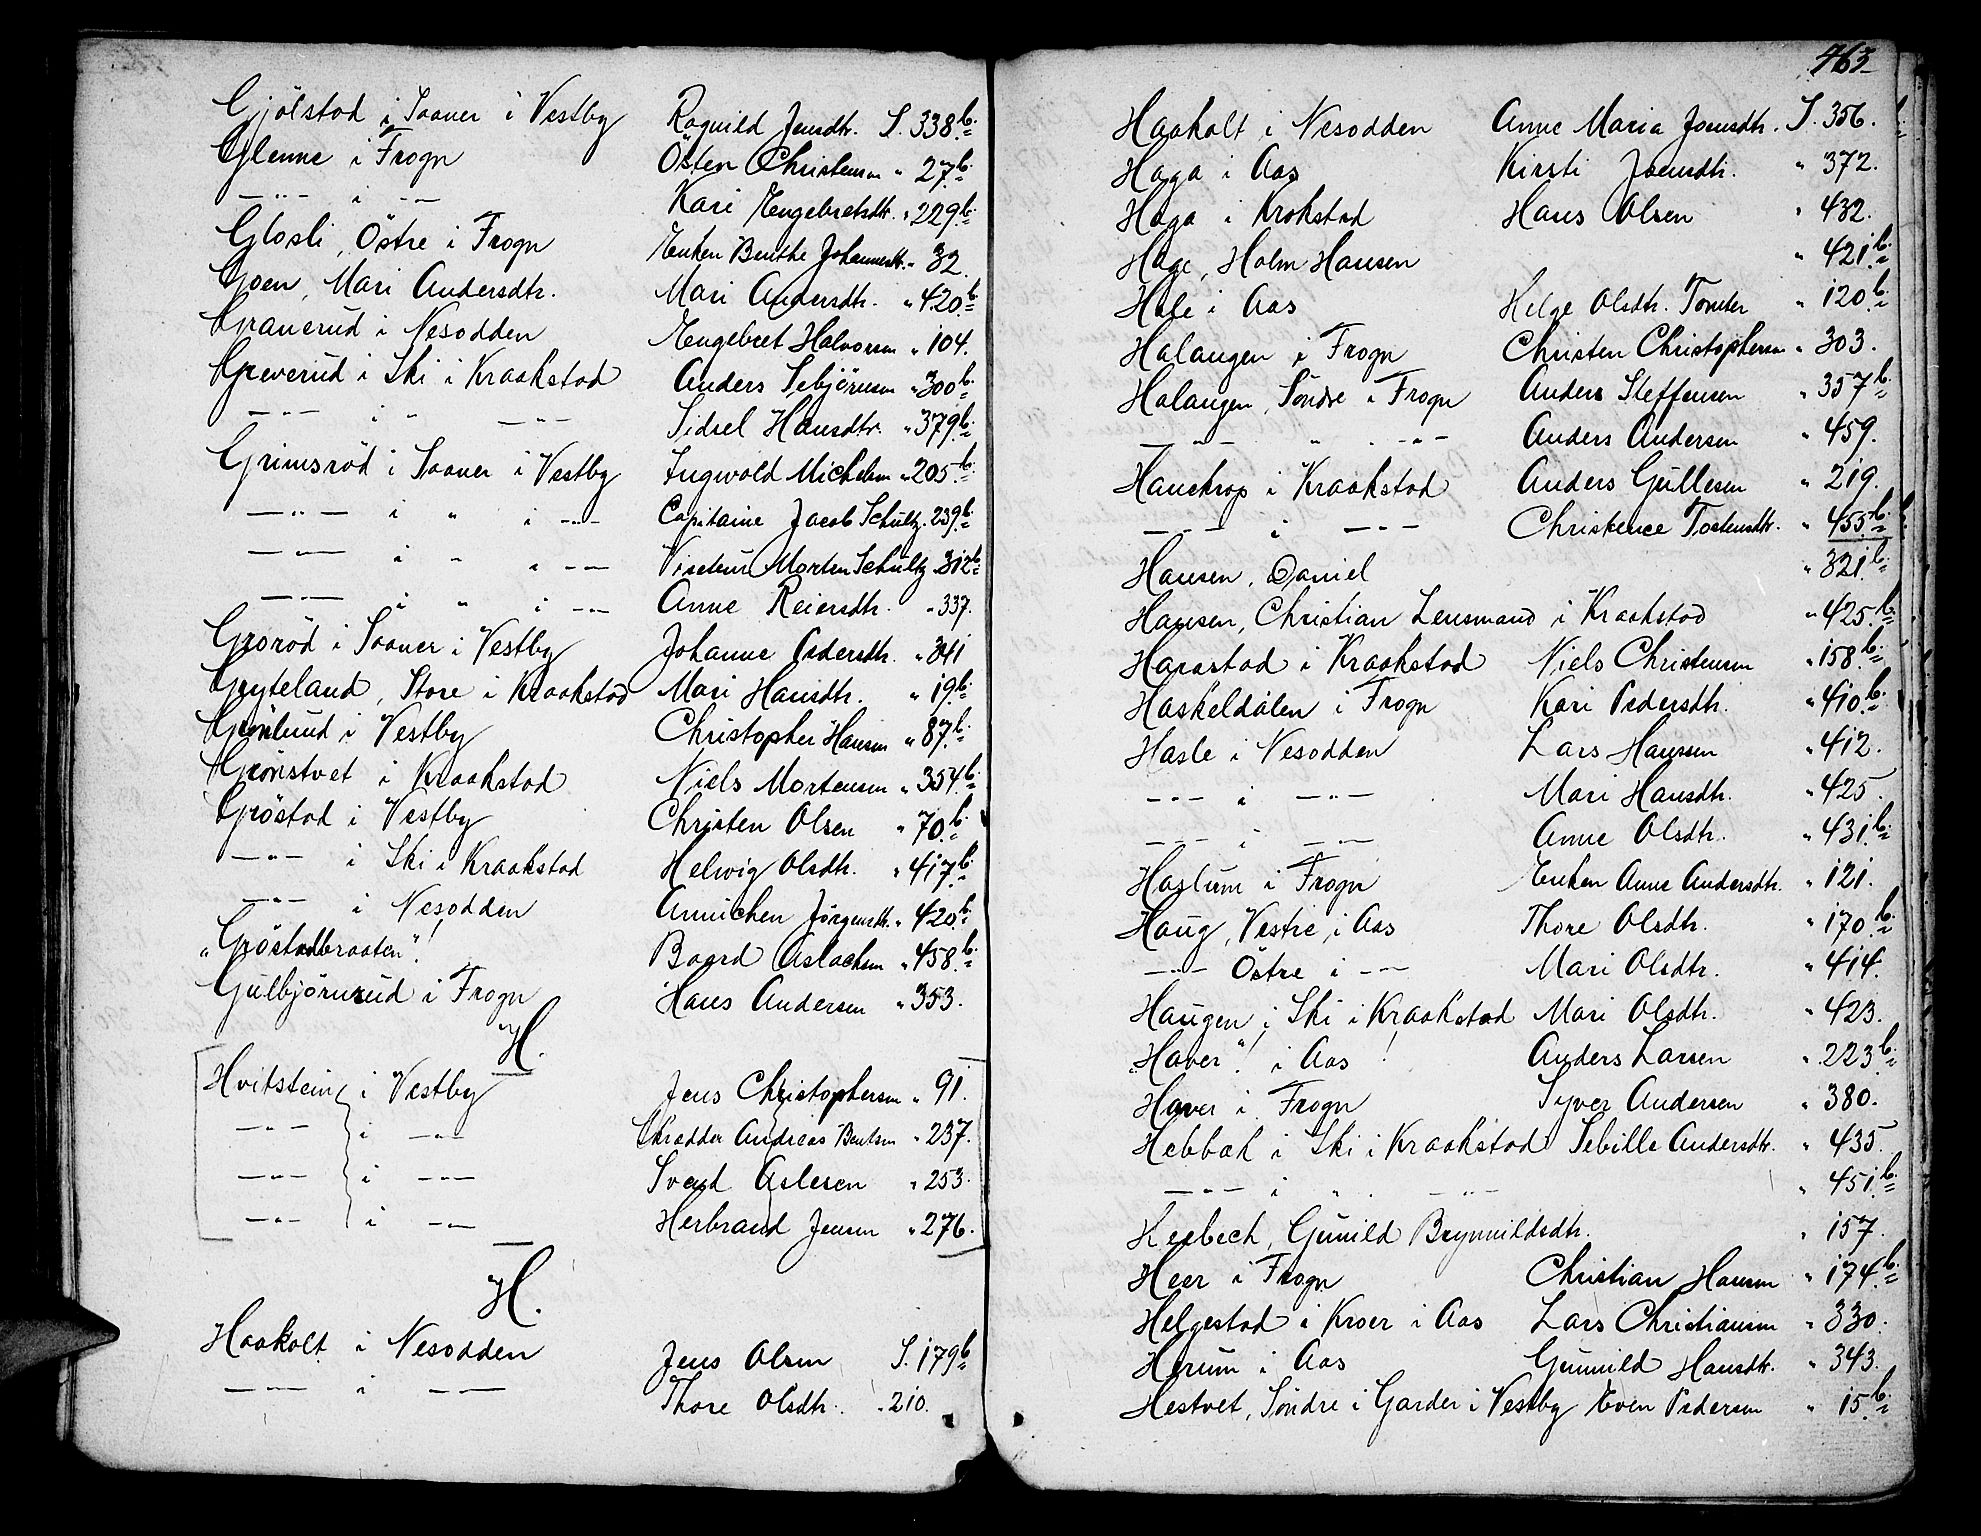 Gjølstad i Saaner i Vestby Ragnild Jensdtr. S. 338b.
Glenne i Frogn Østen Christensen " 27b.
—"— i —"— Kari Engebretsdtr. " 229b.
Glosli, Östre i Frogn Enken Benthe Johannesdtr. " 32.
Goen, Mari Andersdtr. Mari Andersdtr. " 420b.
Granerud i Nesodden Engebret Halvorsen " 104.
Greverud i Ski i Kraakstad Anders Sebjörnsen " 300b.
—"— i " —"— Sidsel Hansdtr. " 379b.
Grimsröd i Saaner i Vestby Ingwold Michelsen " 205b.
—"— i " i —"— Capitaine Jacob Schultz. 239b.
—"— i " i —"— Viseteur Morten Schultz 312b.
—"— i " i —"— Anne Reiersdtr. " 337.
Groröd i Saaner i Vestby Johanne Pedersdtr. " 341
Gryteland, Store i Kraakstad Mari Hansdtr. " 19b.
Grönlund i Vestby Christopher Hansen " 87b.
Grönstvet i Kraakstad Niels Mortensen " 354b.
Gröstad i Vestby Christen Olsen " 70b.
—"— i Ski i Kraakstad Helwig Olsdtr. " 417b.
—"— i Nesodden Annichen Jørgensdtr. " 420b.
"Gröstadbraaten"! Baard Aslachsen " 458b.
Gulbjörnrud i Frogn Hans Andersen " 353.
H.
Hvitstein i Vestby Jens Christophersen " 91.
—"— i —"— Skrædder Andreas Bentsen " 237.
—"— i —"— Svend Aslesen " 253.
—"— i —"— Herbrand Jensen " 276.
H.
Haakolt i Nesodden Jens Olsen S. 179b
—"— i —"— Thore Olsdtr. " 210.
463
Haakolt i Nesodden Anne Maria Joensdtr. S. 356.
Haga i Aas Kirsti Joensdtr. " 372.
Haga i Krokstad Hans Olsen " 432.
Hage, Holm Hansen " 421b.
Hale i Aas Helge Olsdtr. Tomter " 120b.
Halangen i Frogn Christen Christophersen " 303.
Halangen, Söndre i Frogn Anders Steffensen " 357b.
—"— " —"— Anders Andersen " 459.
Hanekrop i Kraakstad Anders Gullesen " 219.
—"— i —"— Christence Tostensdtr. " 455b.
Hansen, Daniel " 321b.
Hansen, Christian Lensmand i Kraakstad " 425b.
Harastad i Kraakstad Niels Christensen " 158b.
Haskeldalen i Frogn Kari Pedersdtr. " 410b.
Hasle i Nesodden Lars Hanssen " 412.
—"— i —"— Mari Hansdtr. " 425.
—"— i —"— Anne Olsdtr. " 431b.
Haslum i Frogn Enken Anne Andersdtr. " 121.
Haug, Vestre, i Aas Thore Olsdtr. " 170b.
—"— Östre i —"— Mari Olsdtr. " 414.
Haugen i Ski i Kraakstad Mari Olsdtr. " 423.
"Haver"! i Aas! Anders Larsen " 223b.
Haver i Frogn Syver Andersen " 380.
Hebbæk i Ski i Kraakstad Sebille Andersdtr. " 435.
—"— i " . —"— " 451b.
Heebech, Gunild Brynnildsdtr. " 157.
Heer i Frogn Christian Hansen " 174b.
Helgestad i Kroer i Aas Lars Christiansen " 330.
Herum i Aas Gunnild Hansdtr. " 343.
Hestvet, Söndre i Garder i Vestby Even Pedersen " 15b.